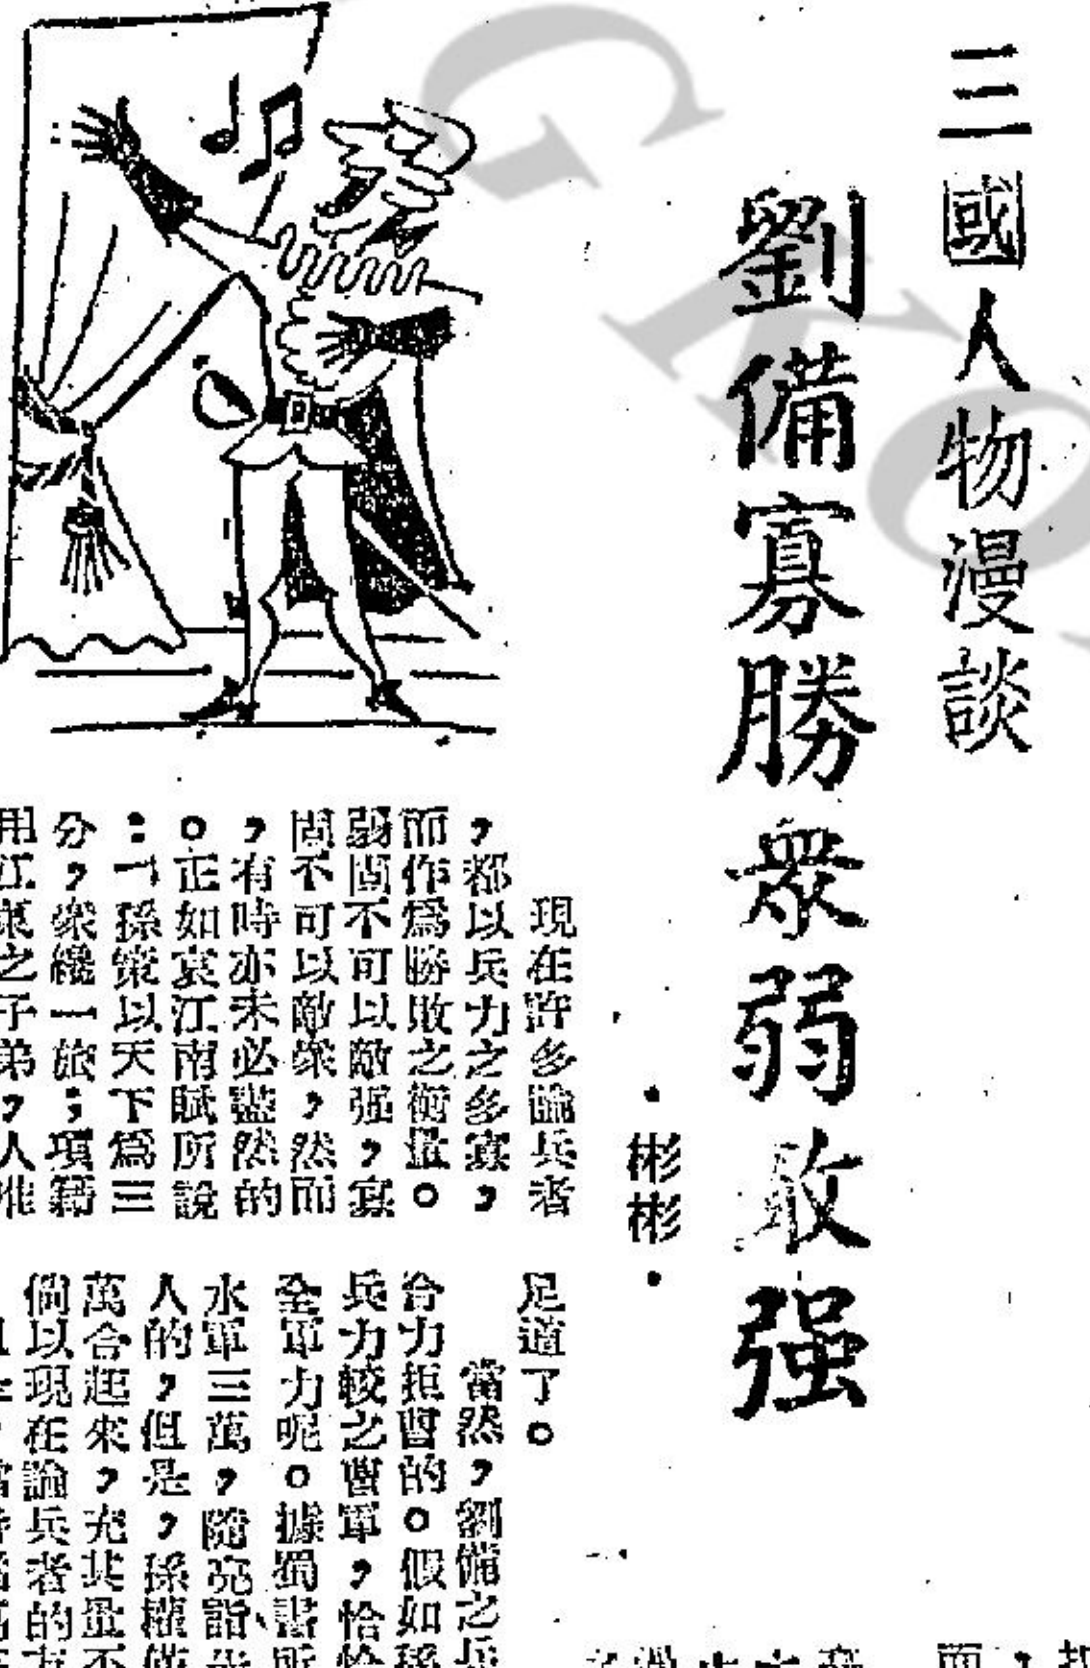 三國人物漫談
劉備寡勝衆弱敵强
·彬彬·
現在許多論兵者
，都以兵力之多寡，
而作爲勝敗之衡量。
弱固不可以敵强，寡
固不可以敵衆，然而
，有時亦未必盡然的
。正如哀江南賦所說
：「孫策以天下爲三
分，衆纔一旅；項籍
用江東之子弟，人惟
足道了。
當然，劉備之兵
合力拒曹的。假如孫
兵力較之曹軍，恰恰
全軍力呢。據蜀書所
水軍三萬，隨亮詣
人的，但是，孫權
萬合起來，充其量不
倘以現在論兵者的